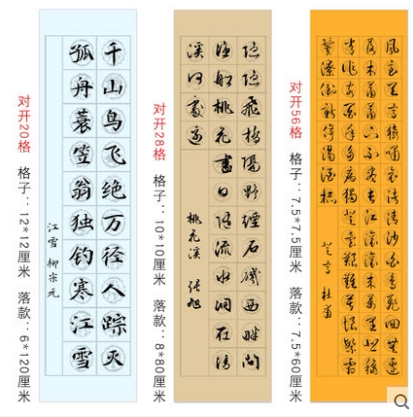 对开20格 格子：12*12厘米 落款：6*120厘米
千山鸟飞绝万径人踪灭
孤舟蓑笠翁独钓寒江雪
江雪 柳宗元
对开28格 格子：10*10厘米 落款：8*80厘米
隐隐飞桥隔野烟石矶西畔问
渔船桃花尽日随流水洞在清
溪何处边
桃花溪 张旭
对开56格 格子：7.5*7.5厘米 落款：7.5*60厘米
风急天高猿啸哀渚清沙白鸟飞回无边
落木萧萧下不尽长江滚滚来万里悲秋
常作客百年多病独登台艰难苦恨繁霜
鬓潦倒新停浊酒杯
登高 杜甫